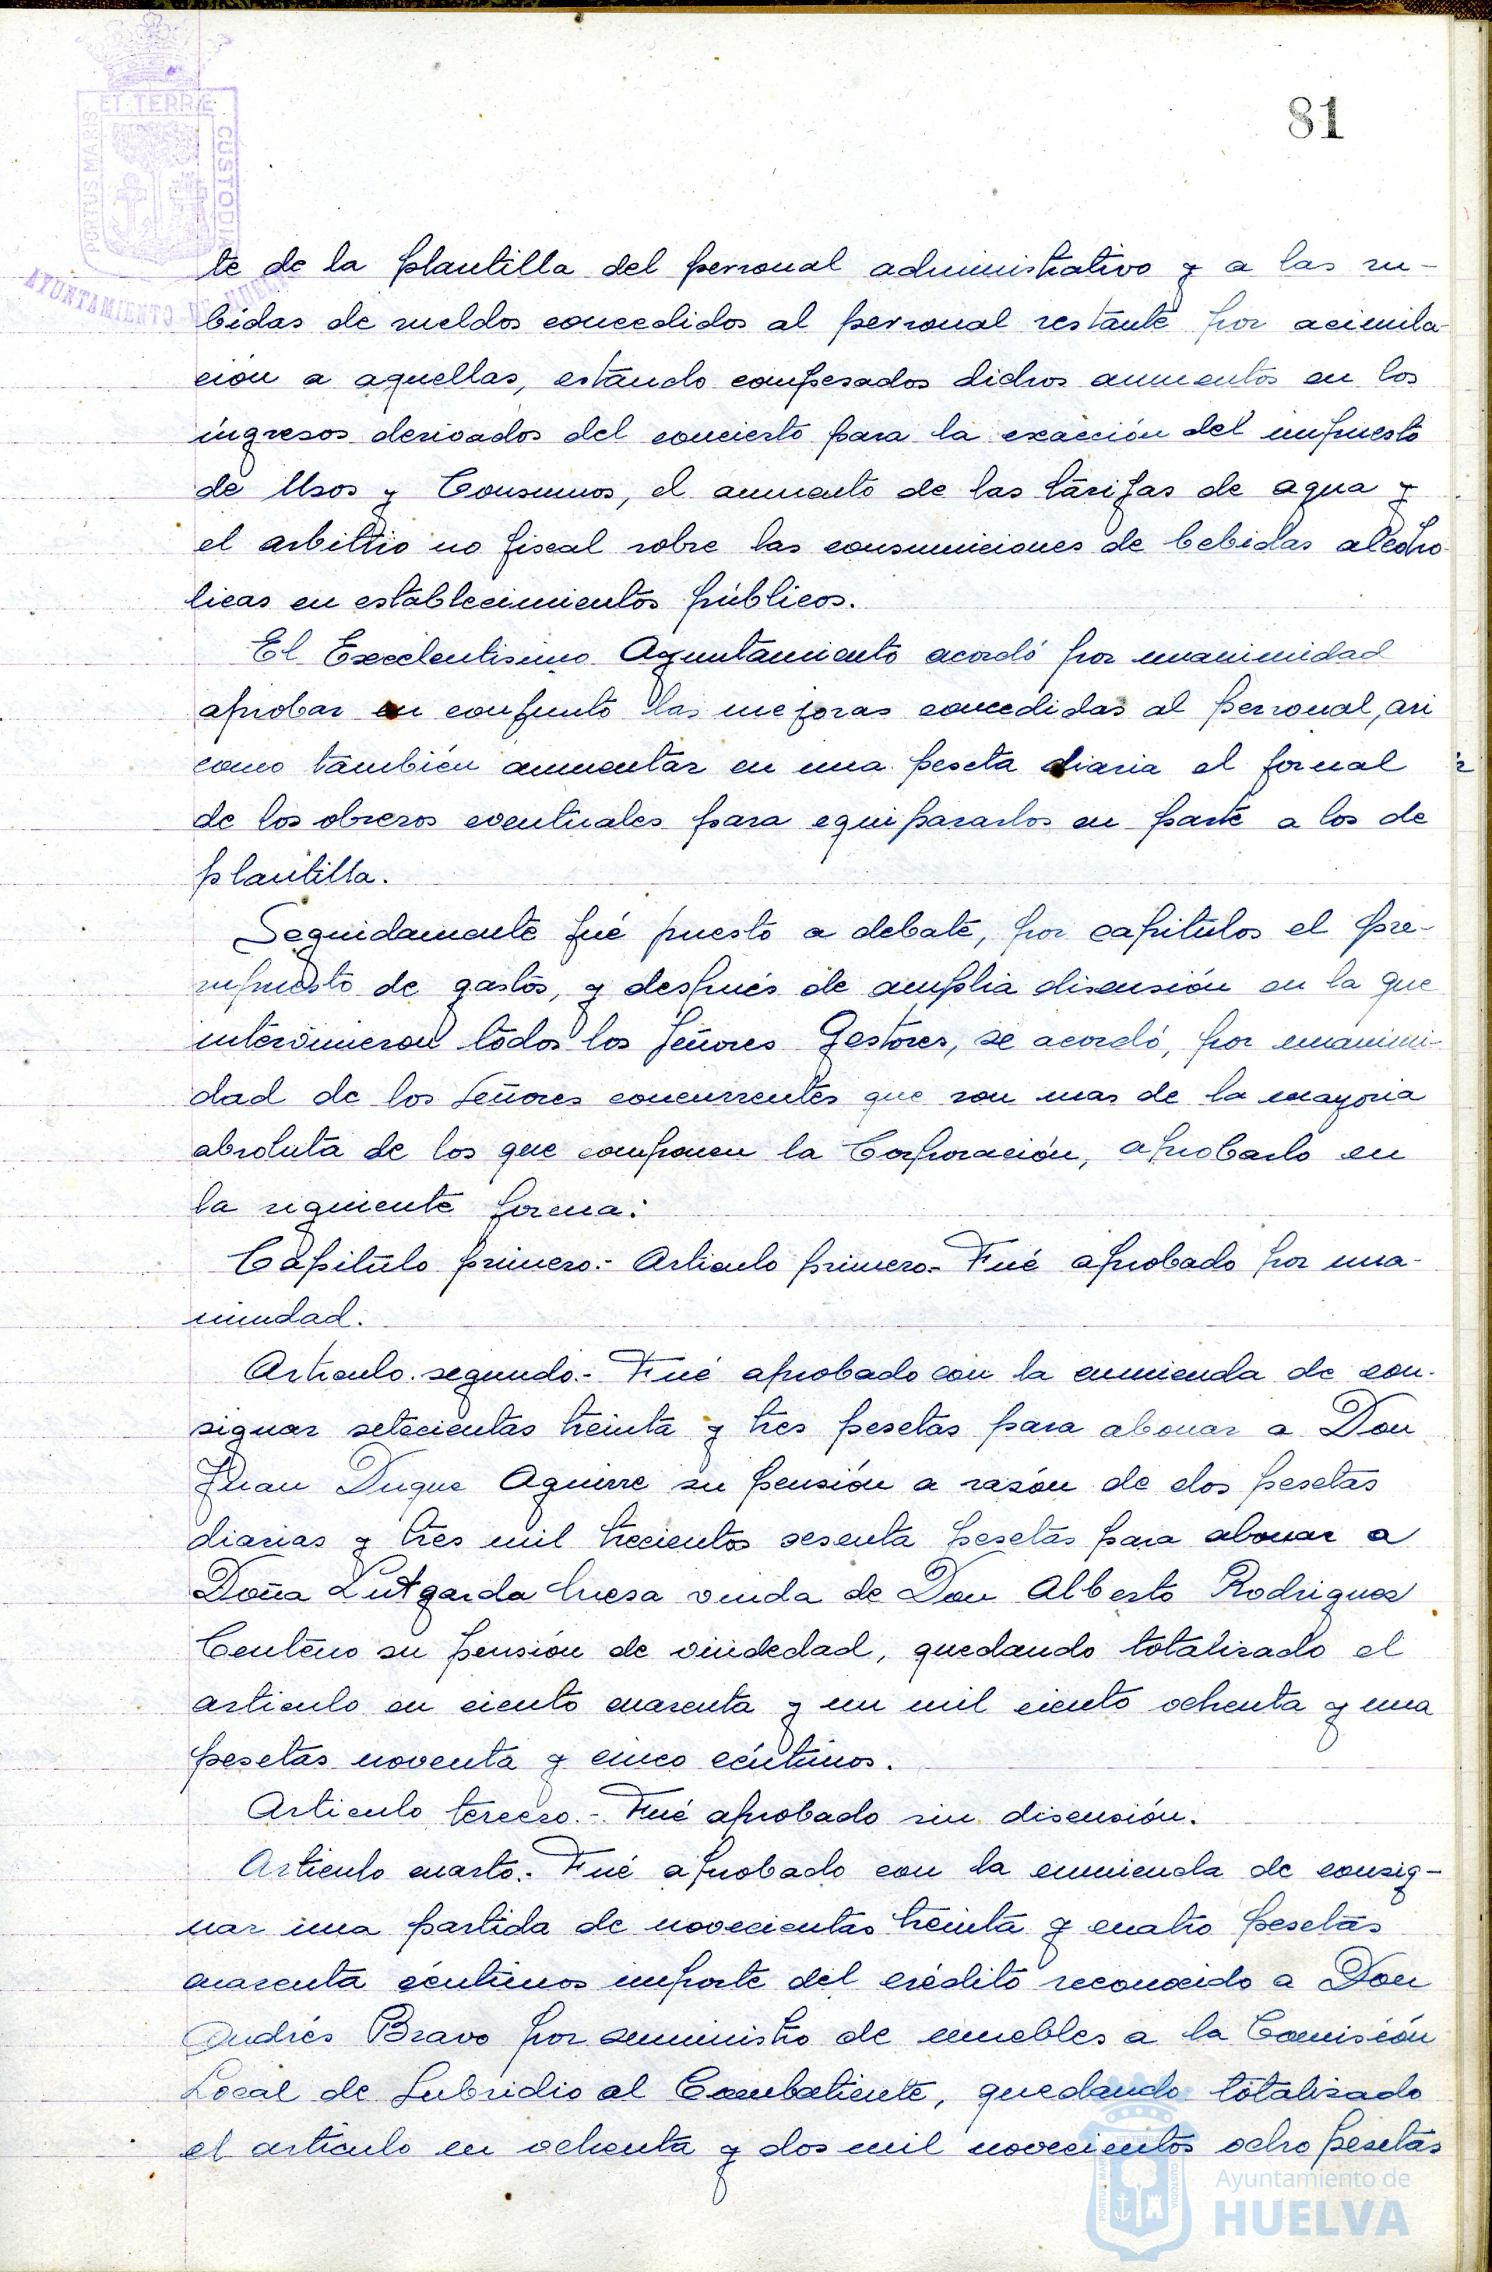 81
PORTUS MARIS ET TERRE CUSTODIA
AYUNTAMIENTO DE HUELVA
te de la plantilla del personal administrativo y a las su-
bidas de sueldos concedidos al personal restante por acimila-
ción a aquellas, estando compesados dichos aumentos en los
ingresos derivados del concierto para la exacción del impuesto
de Usos y Consumos, el aumento de las tarifas de agua y
el arbitrio no fiscal sobre las consumiciones de bebidas alcoho-
licas en establecimientos públicos.
El Excelentisimo Ayuntamiento acordó por unanimidad
aprobar en conjunto las mejoras concedidas al personal, asi
como también aumentar en una peseta diaria el jornal
de los obreros eventuales para equipararlos en parte a los de
plantilla.
Seguidamente fué puesto a debate, por capitulos el pre-
supuesto de gastos, y después de amplia discusión en la que
intervinieron todos los Señores Gestores, se acordó, por unanimi-
dad de los Señores concurrentes que son mas de la mayoria
absoluta de los que componen la Corporación, aprobarlo en
la siguiente forma:
Capitulo primero.- Articulo primero.- Fué aprobado por una-
nimdad.
Articulo segundo.- Fué aprobado con la enmienda de con-
signar setecientas treinta y tres pesetas para abonar a Don
Juan Duque Aguirre su pensión a razón de dos pesetas
diarias y tres mil trecientos sesenta pesetas para abonar a
Doña Lutgarda huesa viuda de Don Alberto Rodriguez
Centeno su pensión de viudedad, quedando totalizado el
articulo en ciento cuarenta y un mil ciento ochenta y una
pesetas noventa y cinco céntimos.
Articulo tercero.- Fué aprobado sin discusión.
Articulo cuarto.- Fué aprobado con la enmienda de consig-
nar una partida de novecientas treinta y cuatro pesetas
cuarenta céntimos importe del crédito reconocido a Don
Andrés Bravo por suministro de muebles a la Comisión
Local de Subsidio al Combatiente, quedando totalizado
el articulo en ochenta y dos mil novecientos ocho pesetas
Ayuntamiento de
HUELVA